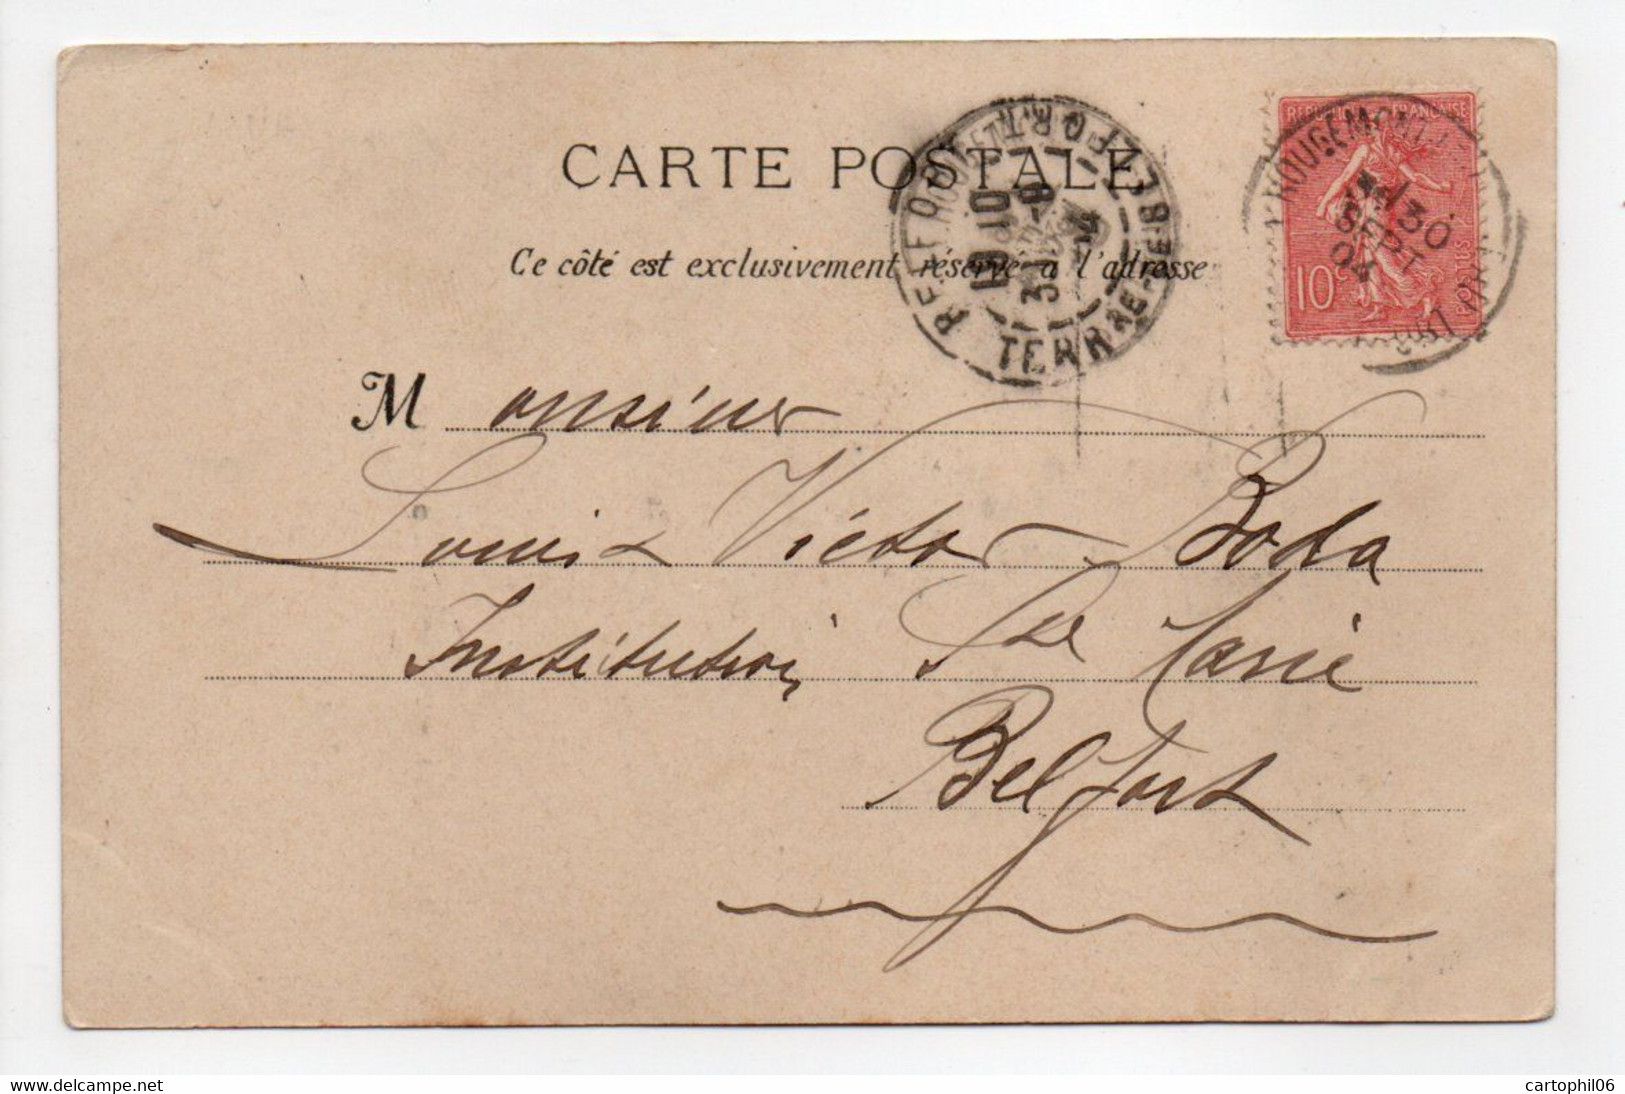 CARTE POSTALE
Ce côté est exclusivement réservé à l'adresse
REPUBLIQUE FRANÇAISE
10c
POSTES
ROUGEMONT
30
SEPT
04
BELFORT
TERRE DE BELFORT
Monsieur
Louis Victor Boda
Institution Ste Marie
Belfort
www.delcampe.net
cartophil06